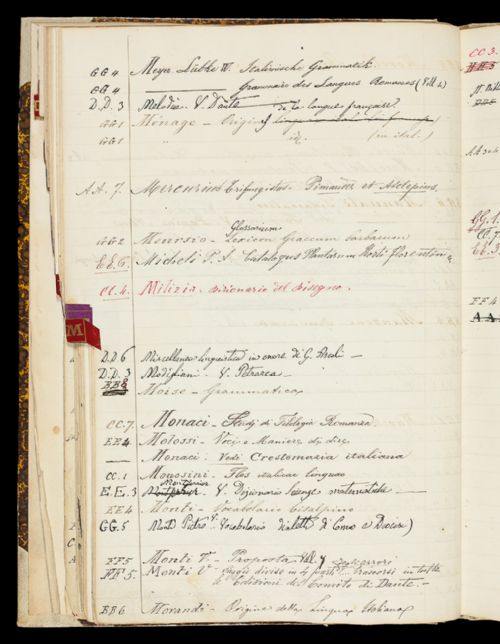 GG 4 Meyer Lübke W. Italienische Grammatik
GG 4 Grammaire des Langues Romanes (Voll. 2)
D.D. 3 Melodia V. Dante
GG 1 Ménage - Origines de la langue française
GG 1 " id. (in ital.)
A.A. 7. Mercurius Trismegistus. Pimander et Asclepius.
Glossarium
GG 2 Meursio - Lexicon Graecum barbarum
EE. 6. Micheli P. A. Catalogus Plantarum Horti florentini
CC. 4. Milizia. dizionario del disegno.
M
D.D 6 Miscellanea linguistica in onore di G. Ascoli -
D.D. 3 Modigliani - V. Petrarca -
BB 8 Moise - Grammatica
CC. 7. Monaci - Studj di Filologia Romanza
EE 4 Molossi - Voci e Maniere di dire
— Monaci. Vedi Crestomazia italiana
CC. 1 Monosini - Flos italicae linguae
E.E. 3 V. Dizionario Scienze naturali
EE 4 Monti - Vocabolario Cisalpino
GG. 5 Monti Pietro - Vocabolario dialetti di Como e
FF 5 Monti V. - Proposta - Voll. 7
FF 5. Monti V. - Saggio diviso in 4 parti degli errori trascorsi in tutte
le edizioni del Convito di Dante. -
BB 6 Morandi - Origine della Lingua Italiana
CC 3.
AA 3
GG. 1
CC. 7
EE. 3
FF 4
A A